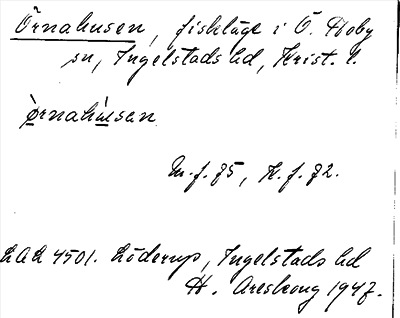 Örnahusen, fiskläge i Ö. Hoby
sn, Ingelstads hd, Krist. l.
òrnahùsen
M. f. 75, K. f. 72.
LAL 4501. Löderup, Ingelstads hd
H. Areskoug 1947.